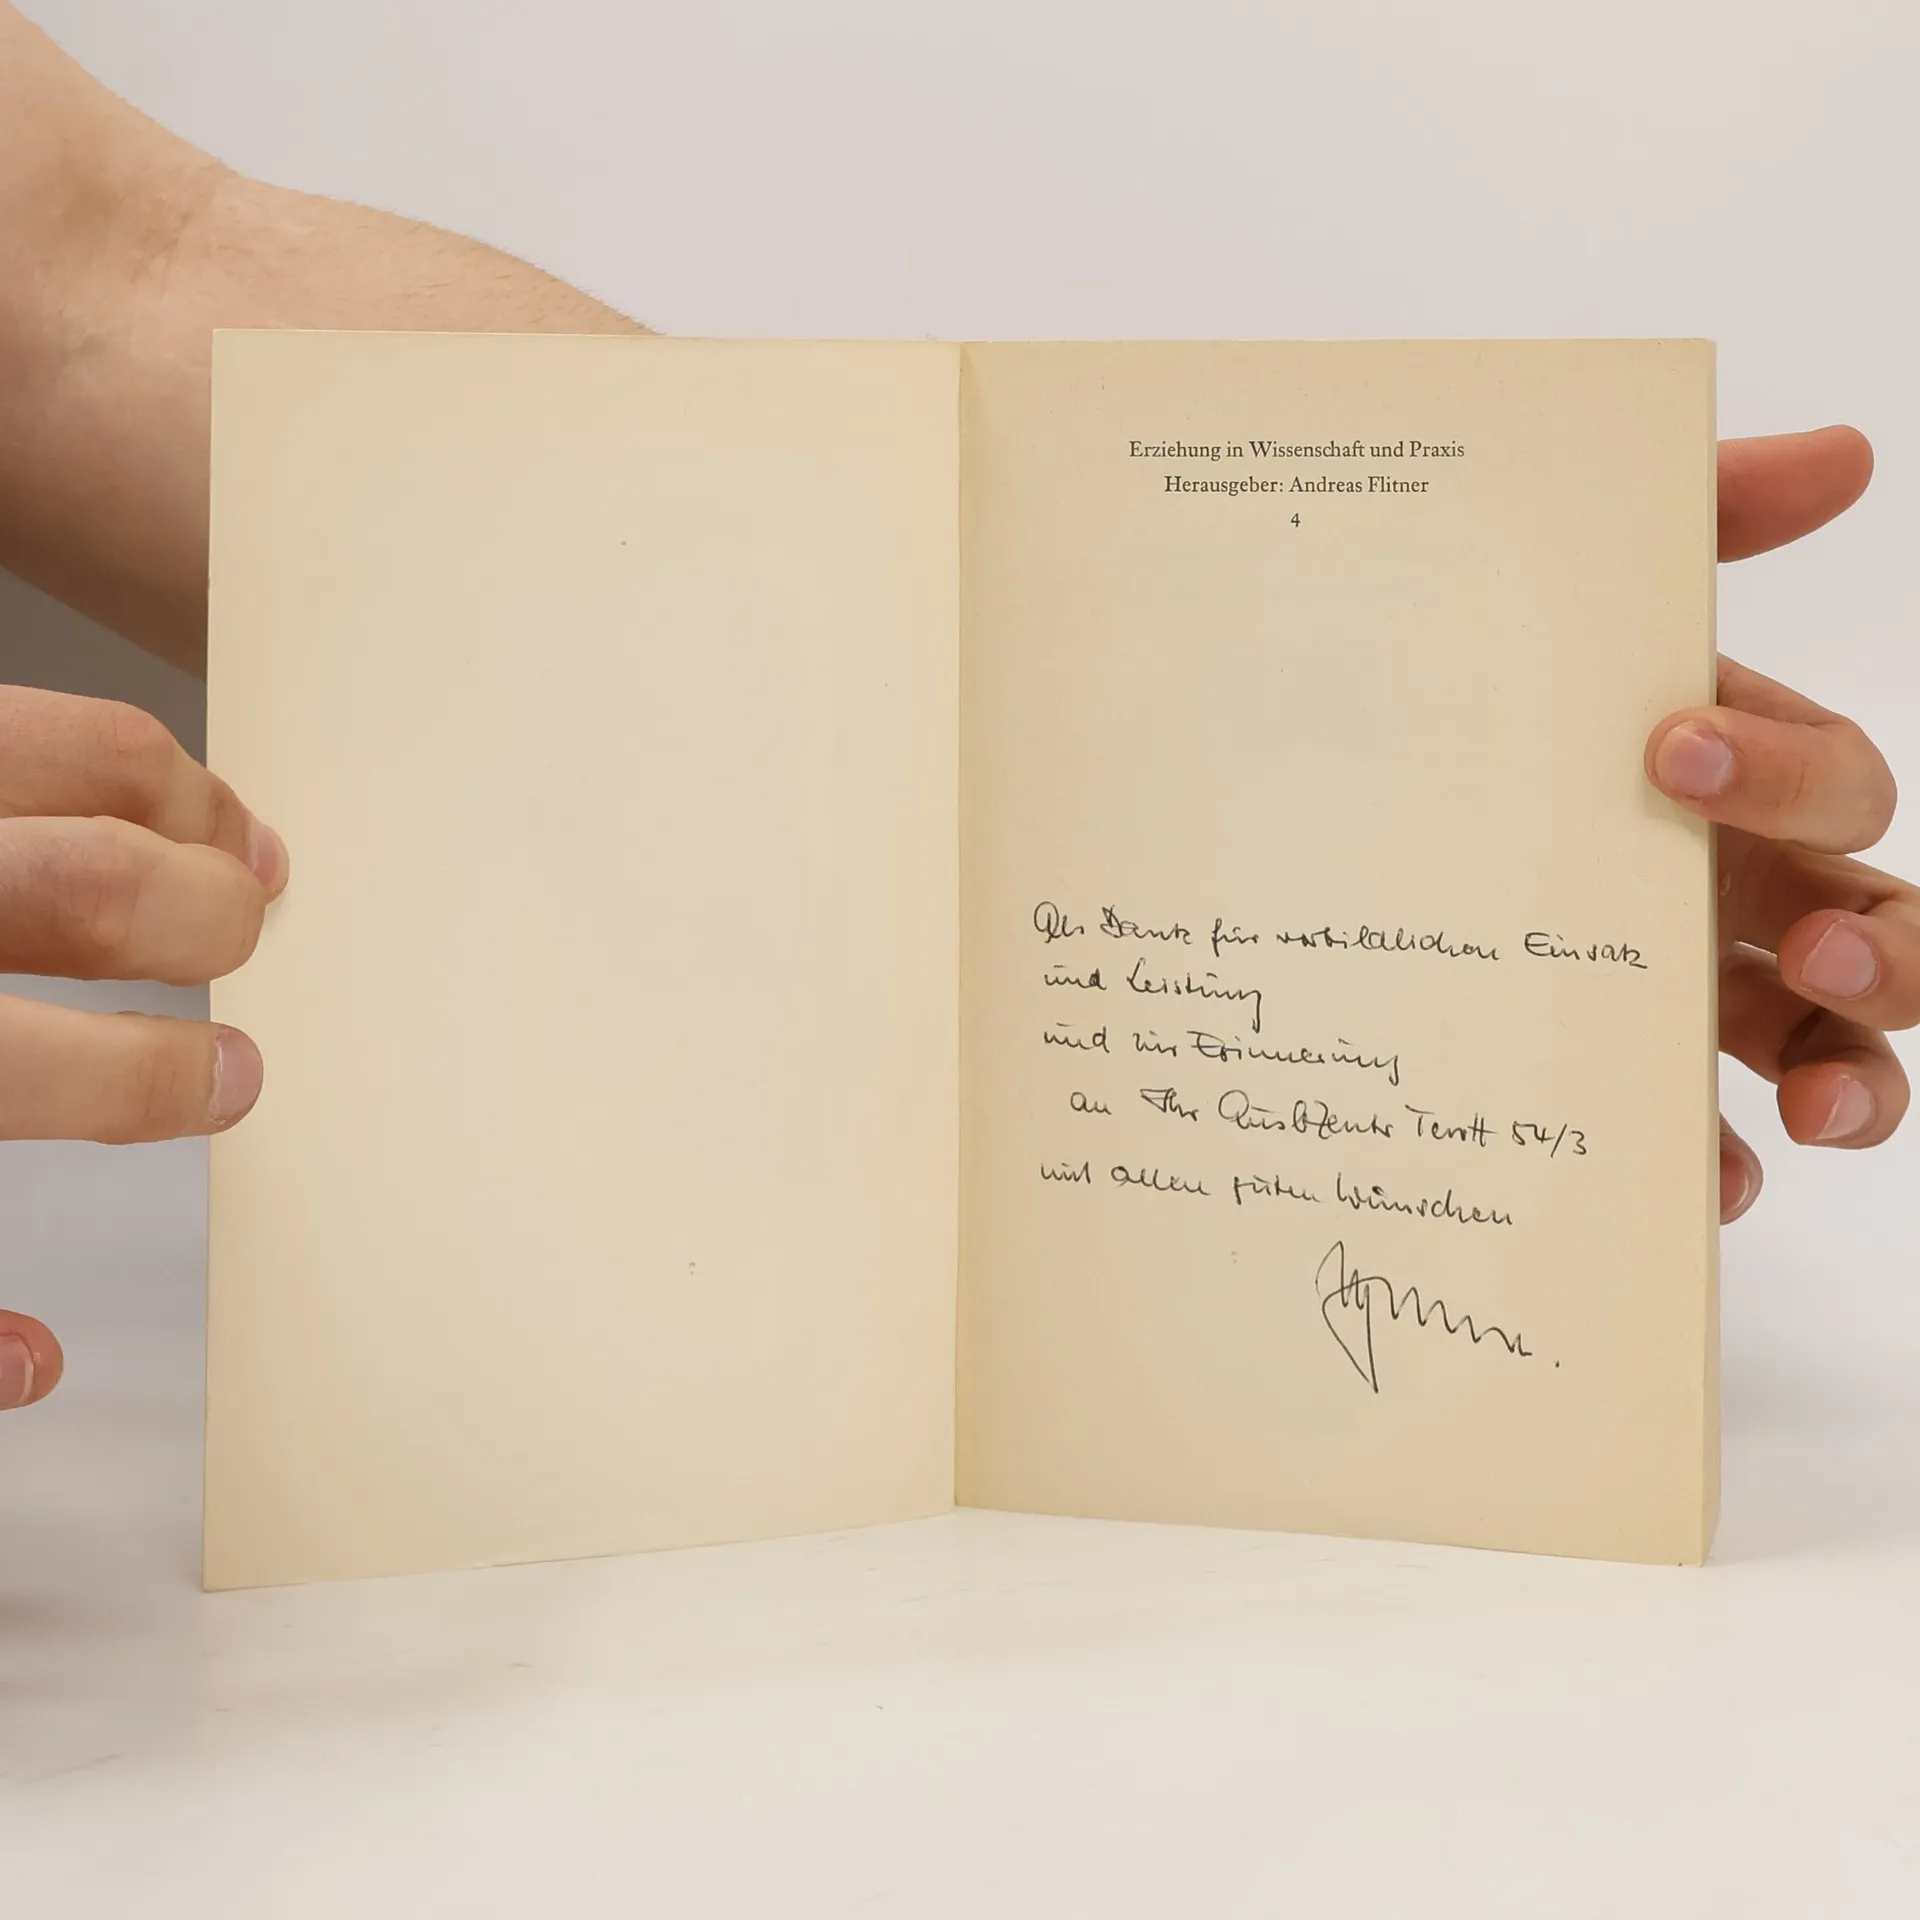 Erziehung in Wissenschaft und Praxis
Herausgeber: Andreas Flitner
4
Als Dank für vorbildlichen Einsatz
und Leistung
und zur Erinnerung
an Ihr 54/3
mit allen guten Wünschen